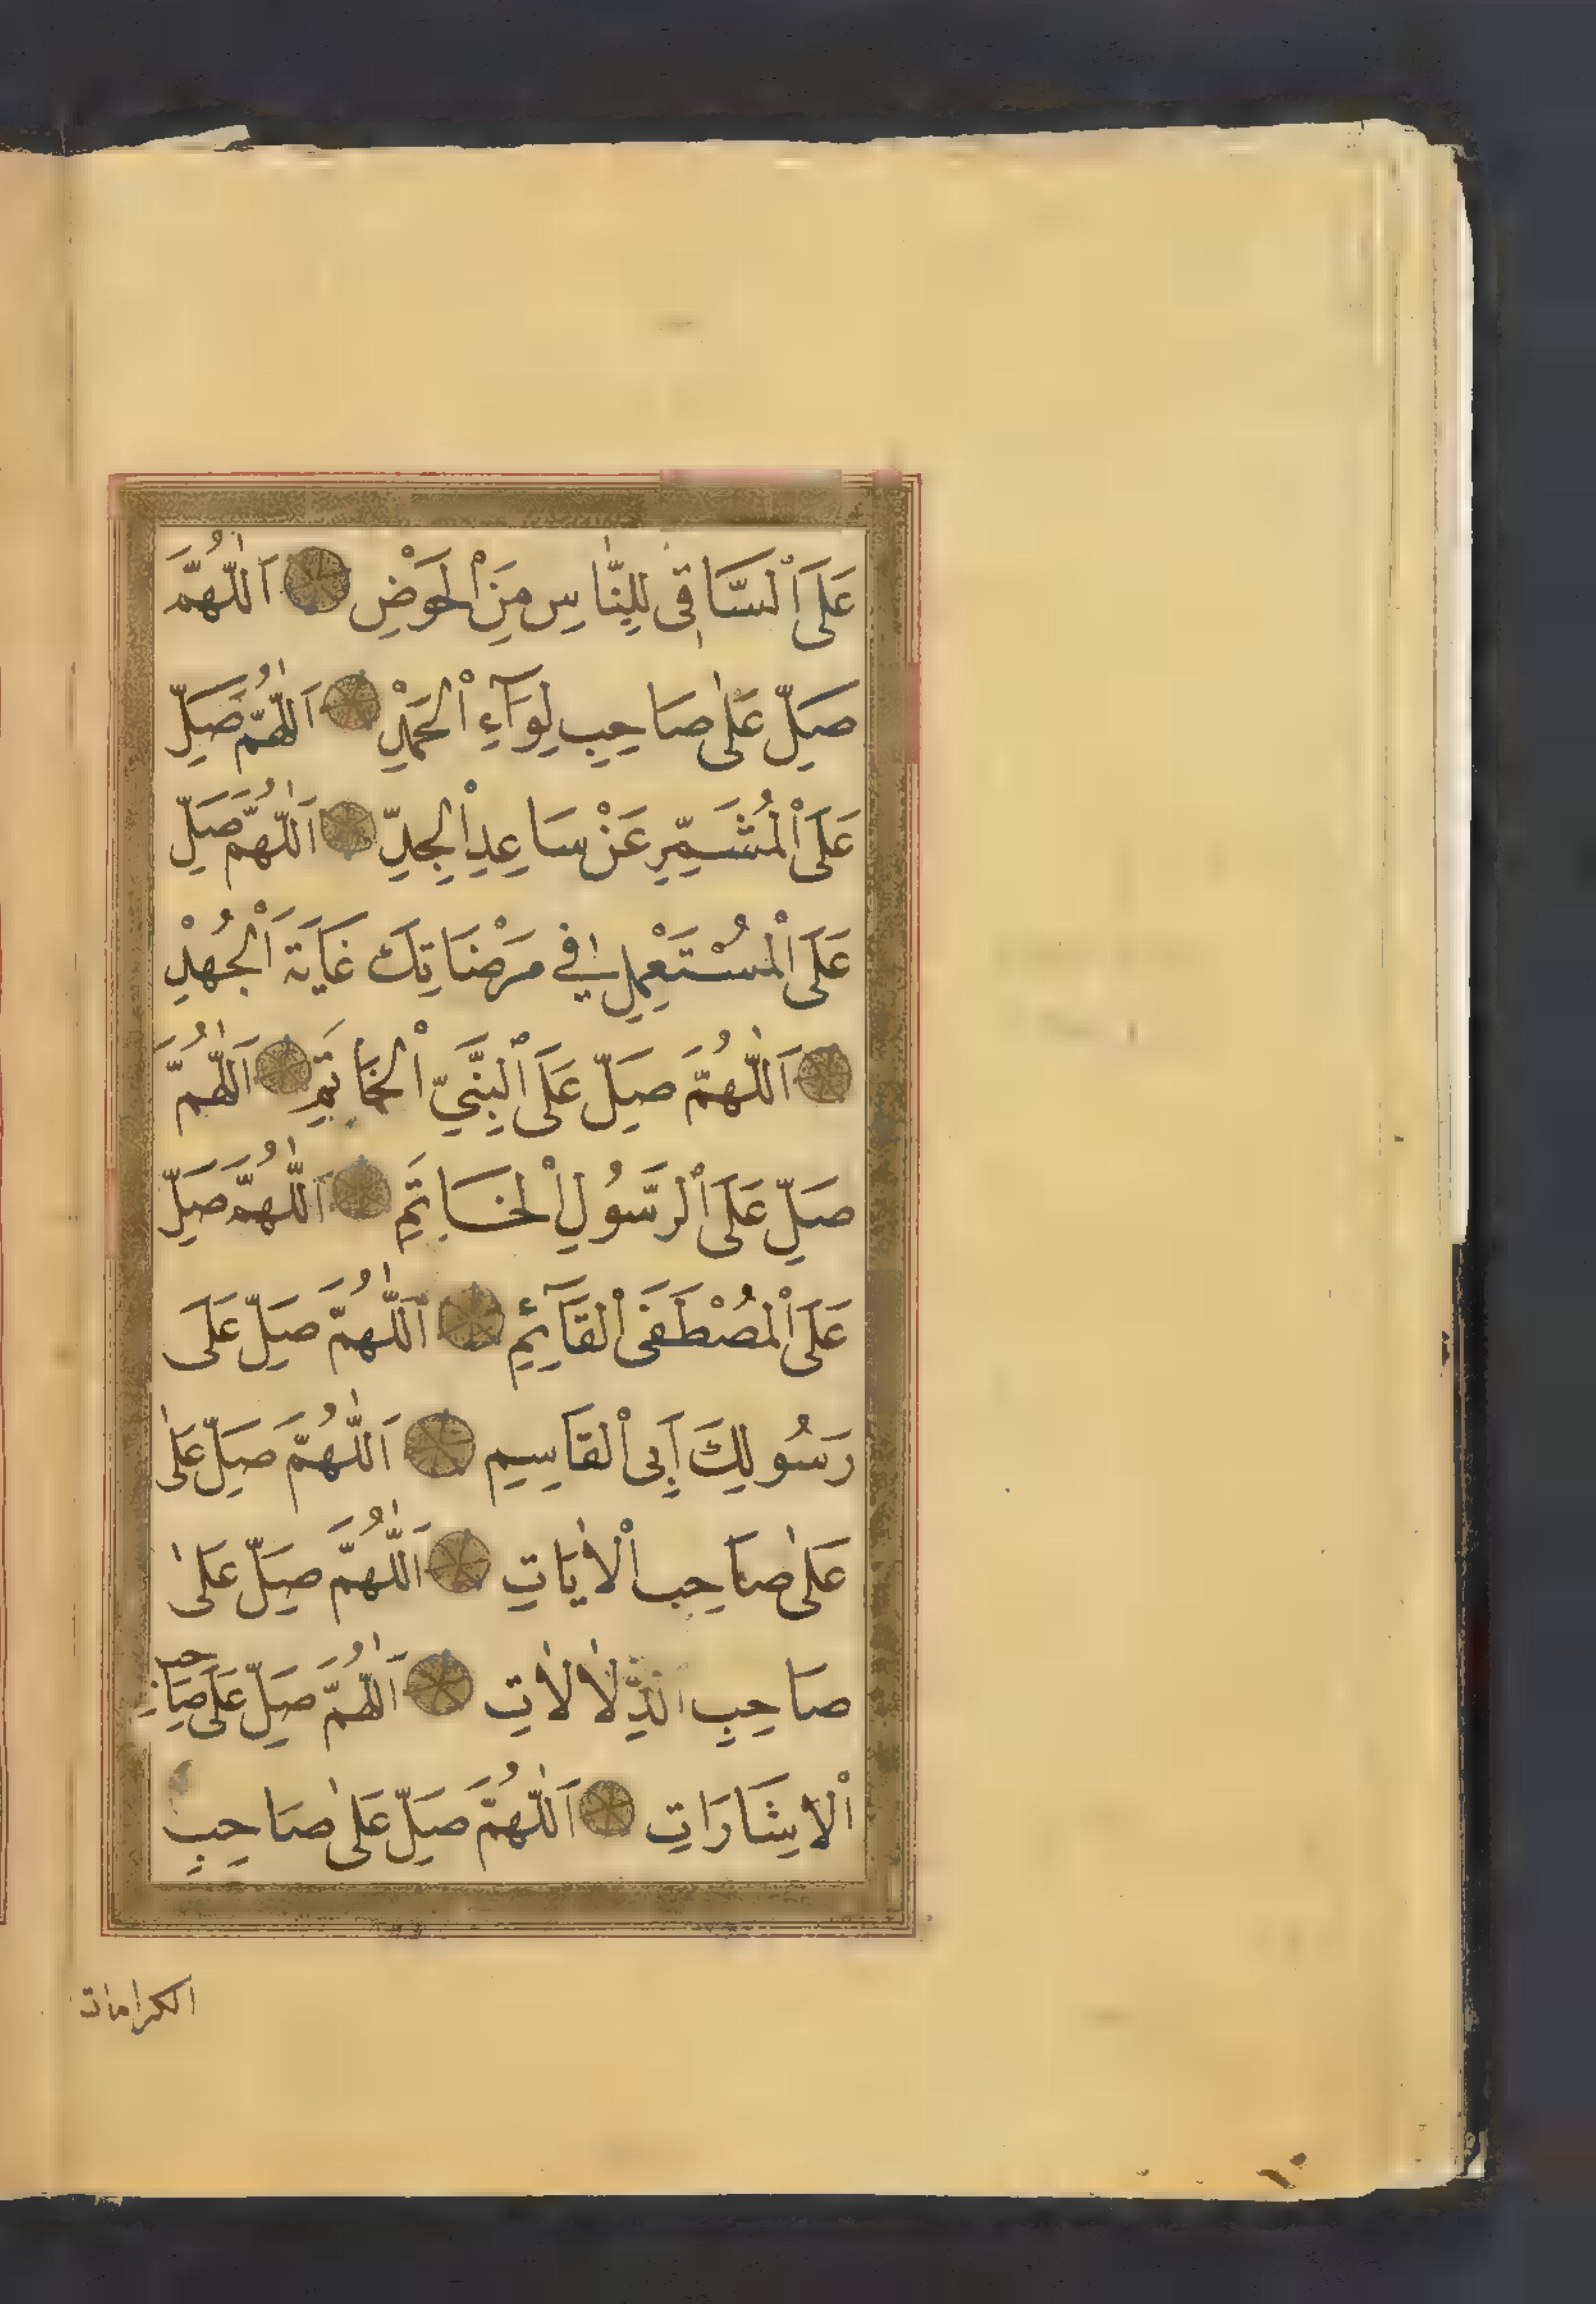 عَلَى ٱلسَّاقِى لِلنَّاسِ مِنَ ٱلْحَوْضِ اَللّٰهُمَّ
صَلِّ عَلٰى صَاحِبِ لِوَآءِ الْحَمْدِ اَللّٰهُمَّ صَلِّ
عَلَى الْمُشَمِّرِ عَنْ سَاعِدِ الْجِدِّ اَللّٰهُمَّ صَلِّ
عَلَى الْمُسْتَعْمِلِ فِي مَرْضَاتِكَ غَايَةَ الْجُهْدِ
اَللّٰهُمَّ صَلِّ عَلَى ٱلنَّبِيِّ الْخَاتَمِ اَللّٰهُمَّ
صَلِّ عَلَى ٱلرَّسُولِ الْخَاتِمِ اَللّٰهُمَّ صَلِّ
عَلَى الْمُصْطَفَى الْقَآئِمِ اَللّٰهُمَّ صَلِّ عَلَى
رَسُولِكَ اَبِى الْقَاسِمِ اَللّٰهُمَّ صَلِّ عَلٰى
عَلٰى صَاحِبِ الْاٰيَاتِ اَللّٰهُمَّ صَلِّ عَلٰى
صَاحِبِ الدِّلَالَاتِ اَللّٰهُمَّ صَلِّ عَلَى صَاحِبِ
الْاِشَارَاتِ اَللّٰهُمَّ صَلِّ عَلٰى صَاحِبِ
الكرامات